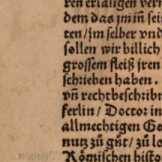 ren erlangen ver
dem das jm in sei
ten / jm selber vnd
sollen wir billich
grossem fleiß jren
schrieben haben.
vñ rechtbeschrib
ferlin / Doctor in
allmechtigen Go
nutz zů gůt / zů l
Römischen hist